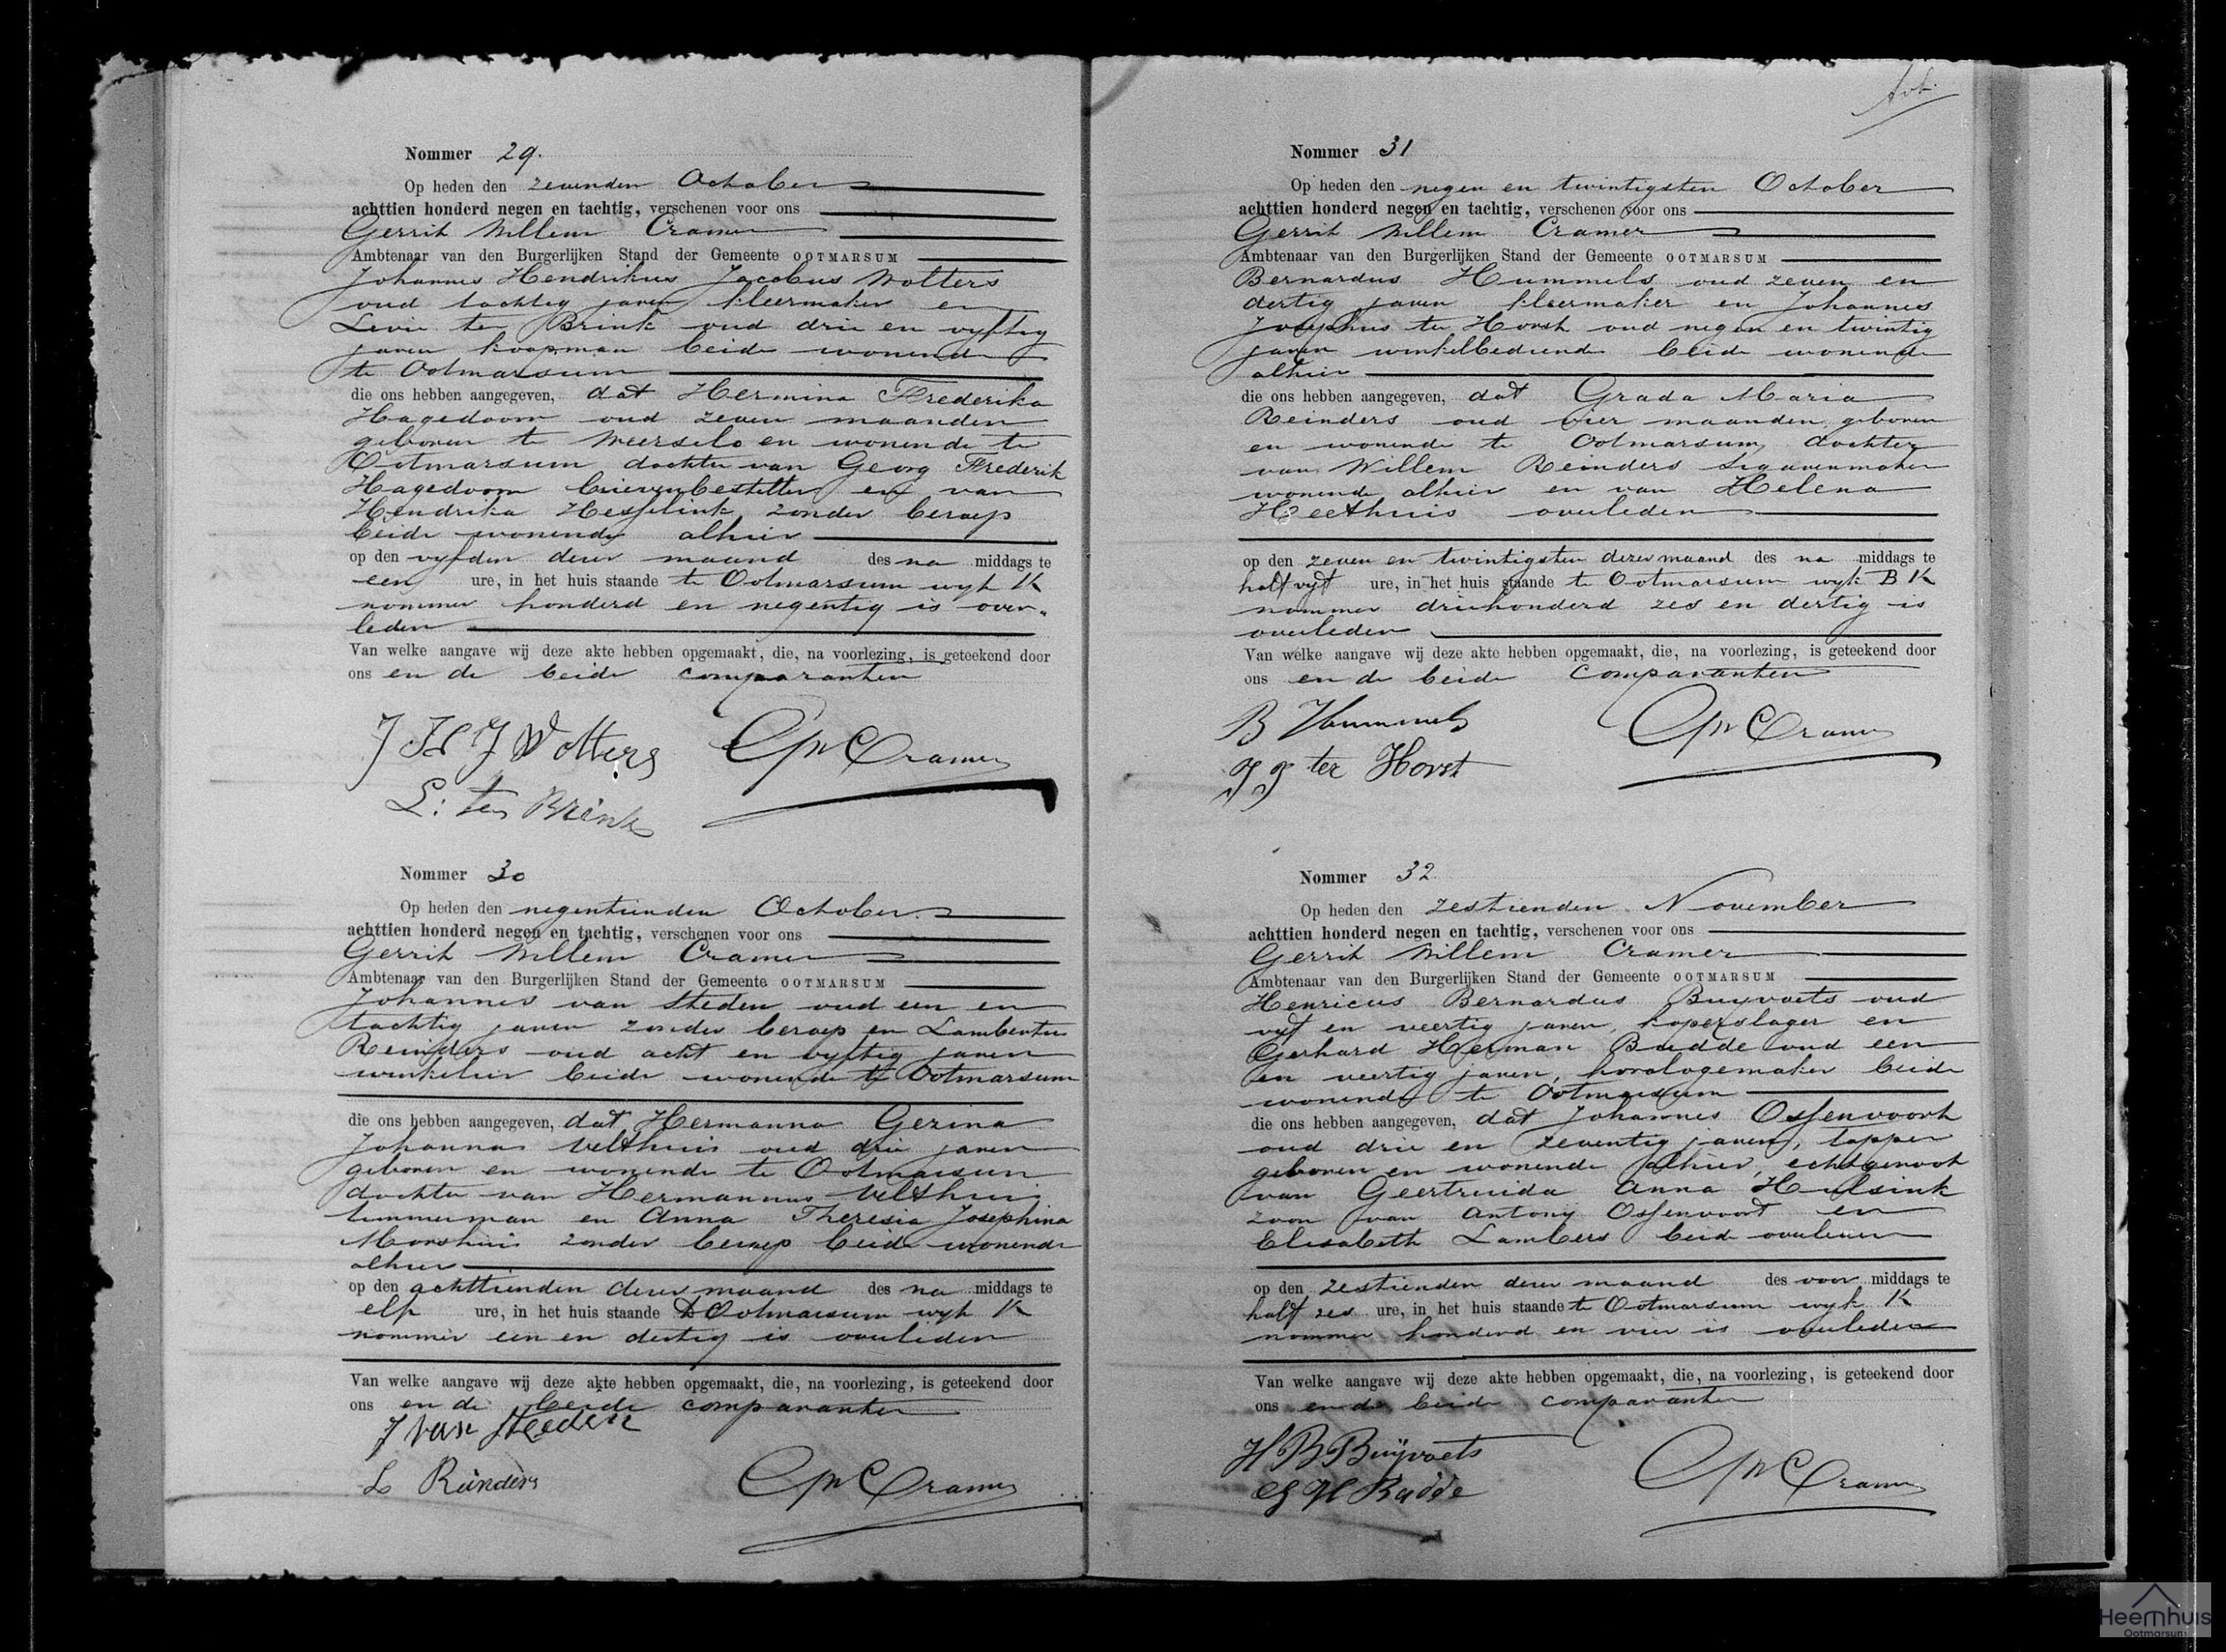 Nommer 29.
Op heden den zevenden October
achttien honderd negen en tachtig, verschenen voor ons
Gerrit Willem Cramer
Ambtenaar van den Burgerlijken Stand der Gemeente OOTMARSUM
Johannes Hendrikus Jacobus Wolters
oud tachtig jaren kleermaker en
Levie ten Brink oud drie en vyftig
jaren koopman beide wonende
te Ootmarsum
die ons hebben aangegeven, dat Hermina Frederika
Hagedoorn oud zeven maanden
geboren te Weerselo en wonende te
Ootmarsum dochter van Georg Frederik
Hagedoorn brievenbesteller en van
Hendrika Hesselink zonder beroep
beide wonende alhier
op den vyfden dezer maand des na middags te
een ure, in het huis staande te Ootmarsum wyk K
nommer honderd en negentig is over-
leden
Van welke aangave wij deze akte hebben opgemaakt, die, na voorlezing, is geteekend door
ons en de beide comparanten
J H J Wolters GW Cramer
L: ten Brink
Nommer 30
Op heden den negentienden October.
achttien honderd negen en tachtig, verschenen voor ons
Gerrit Willem Cramer
Ambtenaar van den Burgerlijken Stand der Gemeente OOTMARSUM
Johannes van Steden oud een en
tachtig jaren zonder beroep en Lambertus
Reinders oud acht en vyftig jaren
winkelier beide wonende te Ootmarsum
die ons hebben aangegeven, dat Hermanna Gezina
Johanna Velthuis oud drie jaren
geboren en wonende te Ootmarsum
dochter van Hermannus Velthuis
timmerman en Anna Theresia Josephina
Morshuis zonder beroep beide wonende
alhier
op den achttienden dezer maand des na middags te
elf ure, in het huis staande te Ootmarsum wyk K
nommer een en dertig is overleden
Van welke aangave wij deze akte hebben opgemaakt, die, na voorlezing, is geteekend door
ons en de beide comparanten
J van Steden
L Reinders GW Cramer
Nommer 31
Op heden den negen en twintigsten October
achttien honderd negen en tachtig, verschenen voor ons
Gerrit Willem Cramer
Ambtenaar van den Burgerlijken Stand der Gemeente OOTMARSUM
Bernardus Hummels oud zeven en
dertig jaren kleermaker en Johannes
Josephus ter Horst oud negen en twintig
jaren winkelbediende beide wonende
alhier
die ons hebben aangegeven, dat Grada Maria
Reinders oud vier maanden geboren
en wonende te Ootmarsum, dochter
van Willem Reinders sigarenmaker
wonende alhier en van Helena
Heethuis overleden
op den zeven en twintigsten dezer maand des na middags te
half vyf ure, in het huis staande te Ootmarsum wyk B K
nommer driehonderd zes en dertig is
overleden
Van welke aangave wij deze akte hebben opgemaakt, die, na voorlezing, is geteekend door
ons en de beide comparanten
B Hummels GW Cramer
J J ter Horst
Nommer 32
Op heden den zestienden November
achttien honderd negen en tachtig, verschenen voor ons
Gerrit Willem Cramer
Ambtenaar van den Burgerlijken Stand der Gemeente OOTMARSUM
Henricus Bernardus Buyvoets oud
vyf en veertig jaren, koperslager en
Gerhard Herman Budde oud een
en veertig jaren, horologemaker beide
wonende te Ootmarsum
die ons hebben aangegeven, dat Johannes Ossenvoort
oud drie en zeventig jaren, tapper
geboren en wonende alhier, echtgenoot
van Geertruida Anna Hulsink
zoon van Antony Ossenvoort en
Elisabeth Lambers beide overleden
op den zestienden dezer maand des voor middags te
half zes ure, in het huis staande te Ootmarsum wyk K
nommer honderd en vier is overleden
Van welke aangave wij deze akte hebben opgemaakt, die, na voorlezing, is geteekend door
ons en de beide comparanten
H B Buijvoets
G H Budde GW Cramer
Heemhuis
Ootmarsum